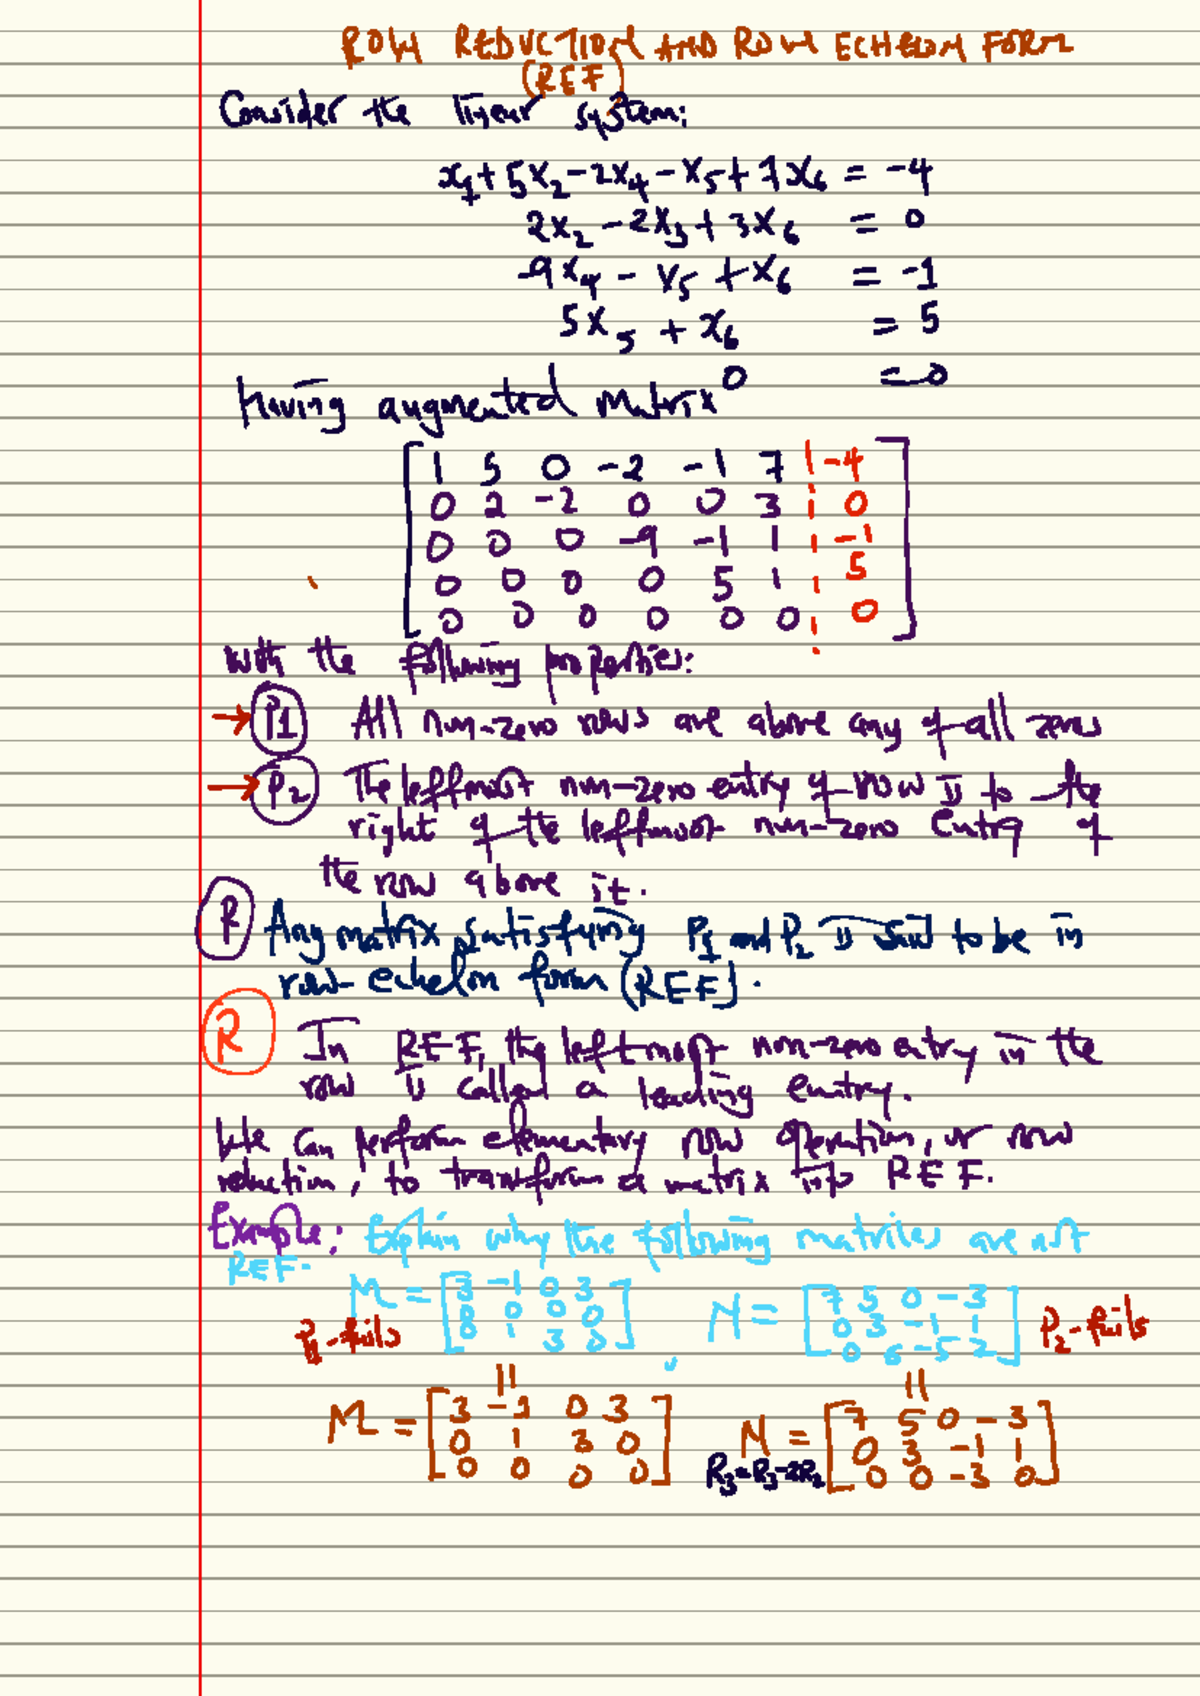 ROW REDUCTION AND ROW ECHELON FORM
(REF)
Consider the linear system:
x₁ + 5x₂ - 2x₄ - x₅ + 7x₆ = -4
2x₂ - 2x₃ + 3x₆ = 0
-9x₄ - x₅ + x₆ = -1
5x₅ + x₆ = 5
0 = 0
Having augmented matrix
[ 1 5 0 -2 -1 7 | -4 ]
[ 0 2 -2 0 0 3 | 0 ]
[ 0 0 0 -9 -1 1 | -1 ]
[ 0 0 0 0 5 1 | 5 ]
[ 0 0 0 0 0 0 | 0 ]
with the following properties:
→ P1 All non-zero rows are above any of all zeros
→ P2 The leftmost non-zero entry of row is to the
right of the leftmost non-zero entry of
the row above it.
R Any matrix satisfying P1 and P2 is said to be in
row-echelon form (REF).
R In REF, the leftmost non-zero entry in the
row is called a leading entry.
We can perform elementary row operation, or row
reduction, to transform a matrix into REF.
Example: Explain why the following matrices are not
REF.
M = [ 3 -1 0 3 ] N = [ 7 5 0 -3 ]
[ 0 0 0 0 ] [ 0 3 -1 1 ]
[ 0 1 3 0 ] [ 0 6 -5 2 ]
P1-fails P2-fails
|| ||
M = [ 3 -1 0 3 ] N = [ 7 5 0 -3 ]
[ 0 1 3 0 ] [ 0 3 -1 1 ]
[ 0 0 0 0 ] R₃=R₃-2R₂ [ 0 0 -3 0 ]